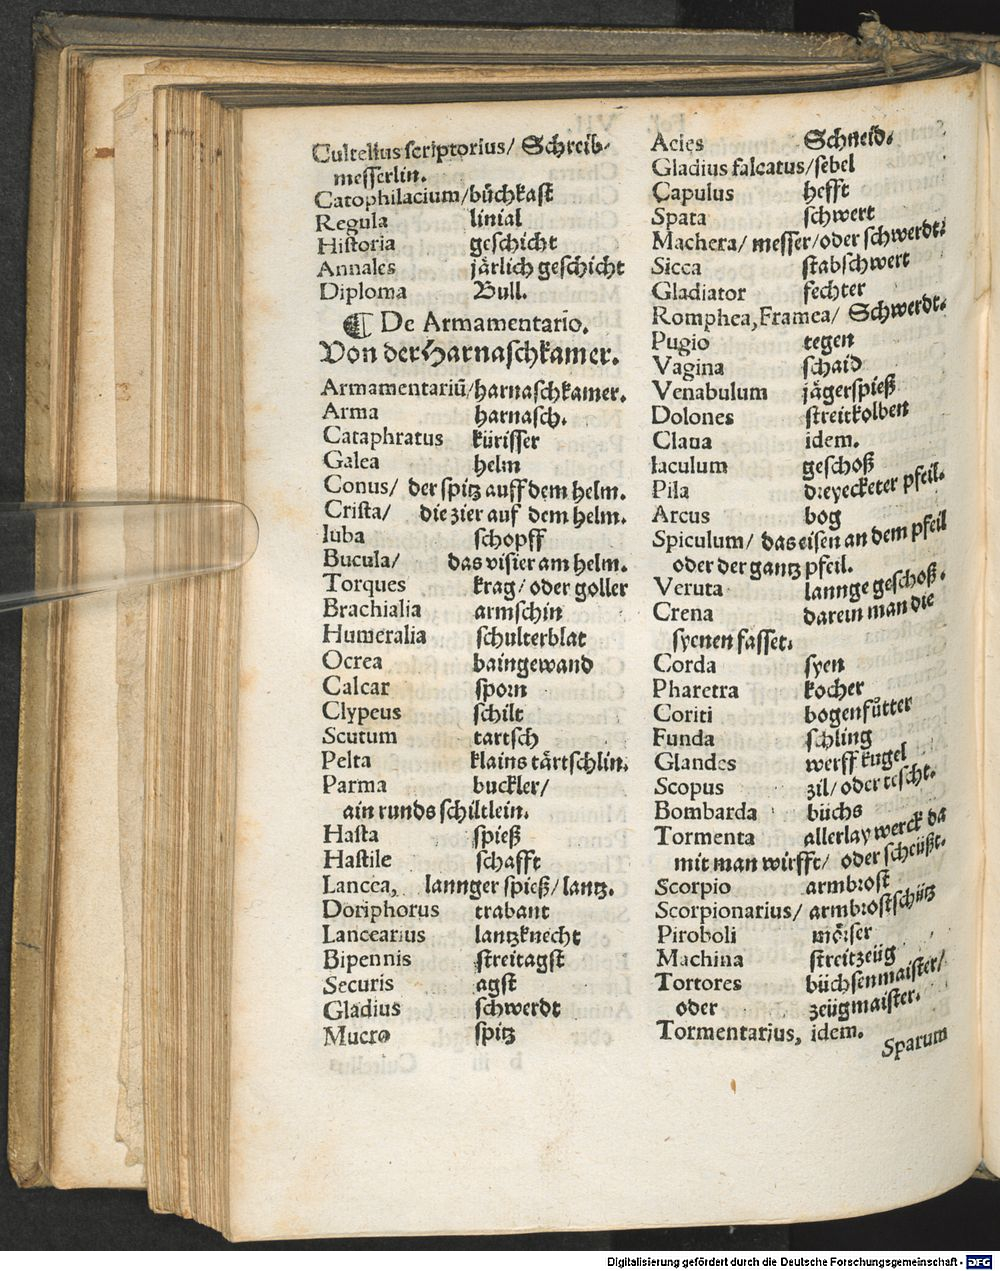 Cultellus scriptorius/ Schreib-
messerlin.
Catophilacium/ bůchkast
Regula linial
Historia geschicht
Annales järlich geschicht
Diploma Bull.
¶ De Armamentario.
Von der Harnaschkamer.
Armamentariū/ harnaschkamer.
Arma harnasch.
Cataphratus kürisser
Galea helm
Conus/ der spitz auff dem helm.
Crista/ die zier auf dem helm.
Iuba schopff
Bucula/ das visier am helm.
Torques krag/ oder goller
Brachialia armschin
Humeralia schulterblat
Ocrea baingewand
Calcar sporn
Clypeus schilt
Scutum tartsch
Pelta klains tärtschlin.
Parma buckler/
ain runds schiltlein.
Hasta spieß
Hastile schafft
Lancea, lannger spieß/ lantz.
Doriphorus trabant
Lancearius lantzknecht
Bipennis streitagst
Securis agst
Gladius schwerdt
Mucro spitz
Acies Schneid.
Gladius falcatus/ sebel
Capulus hefft
Spata schwert
Machera/ messer/ oder schwerdt.
Sicca stabschwert
Gladiator fechter
Romphea, Framea/ Schwerdt.
Pugio tegen
Vagina schaid
Venabulum jägerspieß
Dolones streitkolben
Claua idem.
Iaculum geschoß
Pila dreyecketer pfeil.
Arcus bog
Spiculum/ das eisen an dem pfeil
oder der gantz pfeil.
Veruta lannge geschoß.
Crena darein man die
syenen fasset.
Corda syen
Pharetra kocher
Coriti bogenfůtter
Funda schling
Glandes werff kugel
Scopus zil/ oder tescht.
Bombarda büchs
Tormenta allerlay werck da
mit man wirfft/ oder scheüßt.
Scorpio armbrost
Scorpionarius/ armbrostschütz
Piroboli mörser
Machina streitzeüg
Tortores büchsenmaister/
oder zeügmaister.
Tormentarius, idem.
Sparum
Digitalisierung gefördert durch die Deutsche Forschungsgemeinschaft - DFG